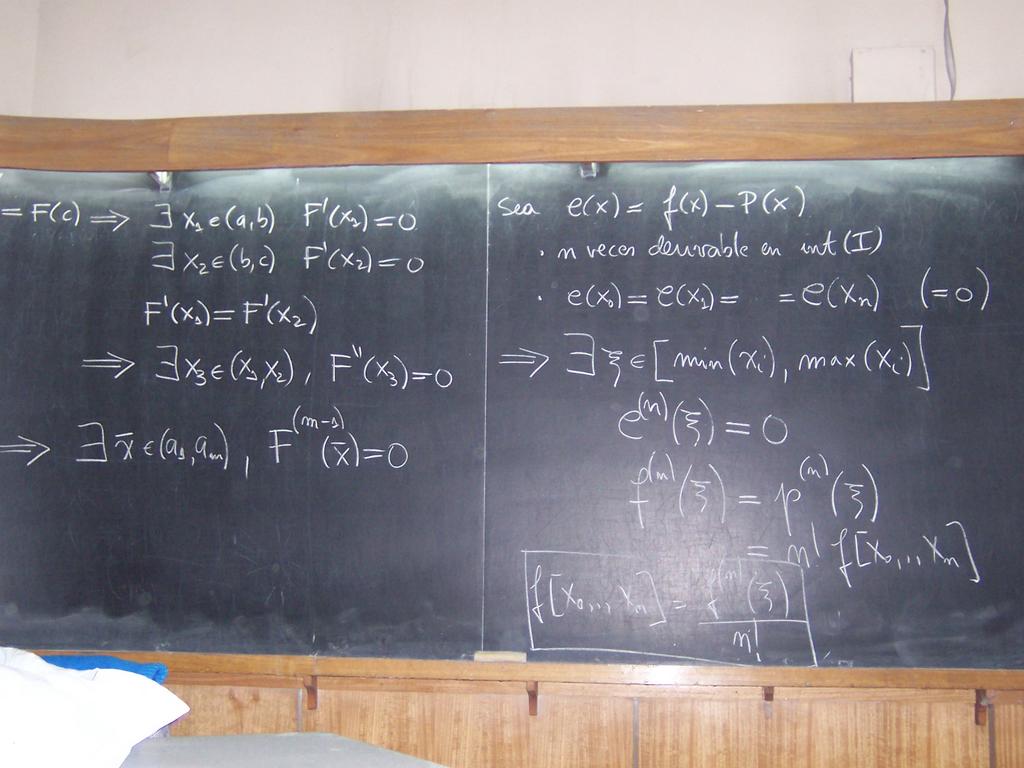 = F(c) ⇒ ∃ x₁ ∈ (a,b) F'(x₁) = 0
∃ x₂ ∈ (b,c) F'(x₂) = 0
F'(x₁) = F'(x₂)
⇒ ∃ x₃ ∈ (x₁,x₂), F''(x₃) = 0
⇒ ∃ x̄ ∈ (a₁, aₘ), F⁽ᵐ⁻¹⁾(x̄) = 0
Sea e(x) = f(x) − P(x)
· n veces derivable en int(I)
· e(x₀) = e(x₁) = = e(xₙ) (=0)
⇒ ∃ ξ ∈ [min(xᵢ), max(xᵢ)]
e⁽ⁿ⁾(ξ) = 0
f⁽ⁿ⁾(ξ) = p⁽ⁿ⁾(ξ)
= n! f[x₀,.., xₙ]
f[x₀,.., xₙ] = f⁽ⁿ⁾(ξ)
n!